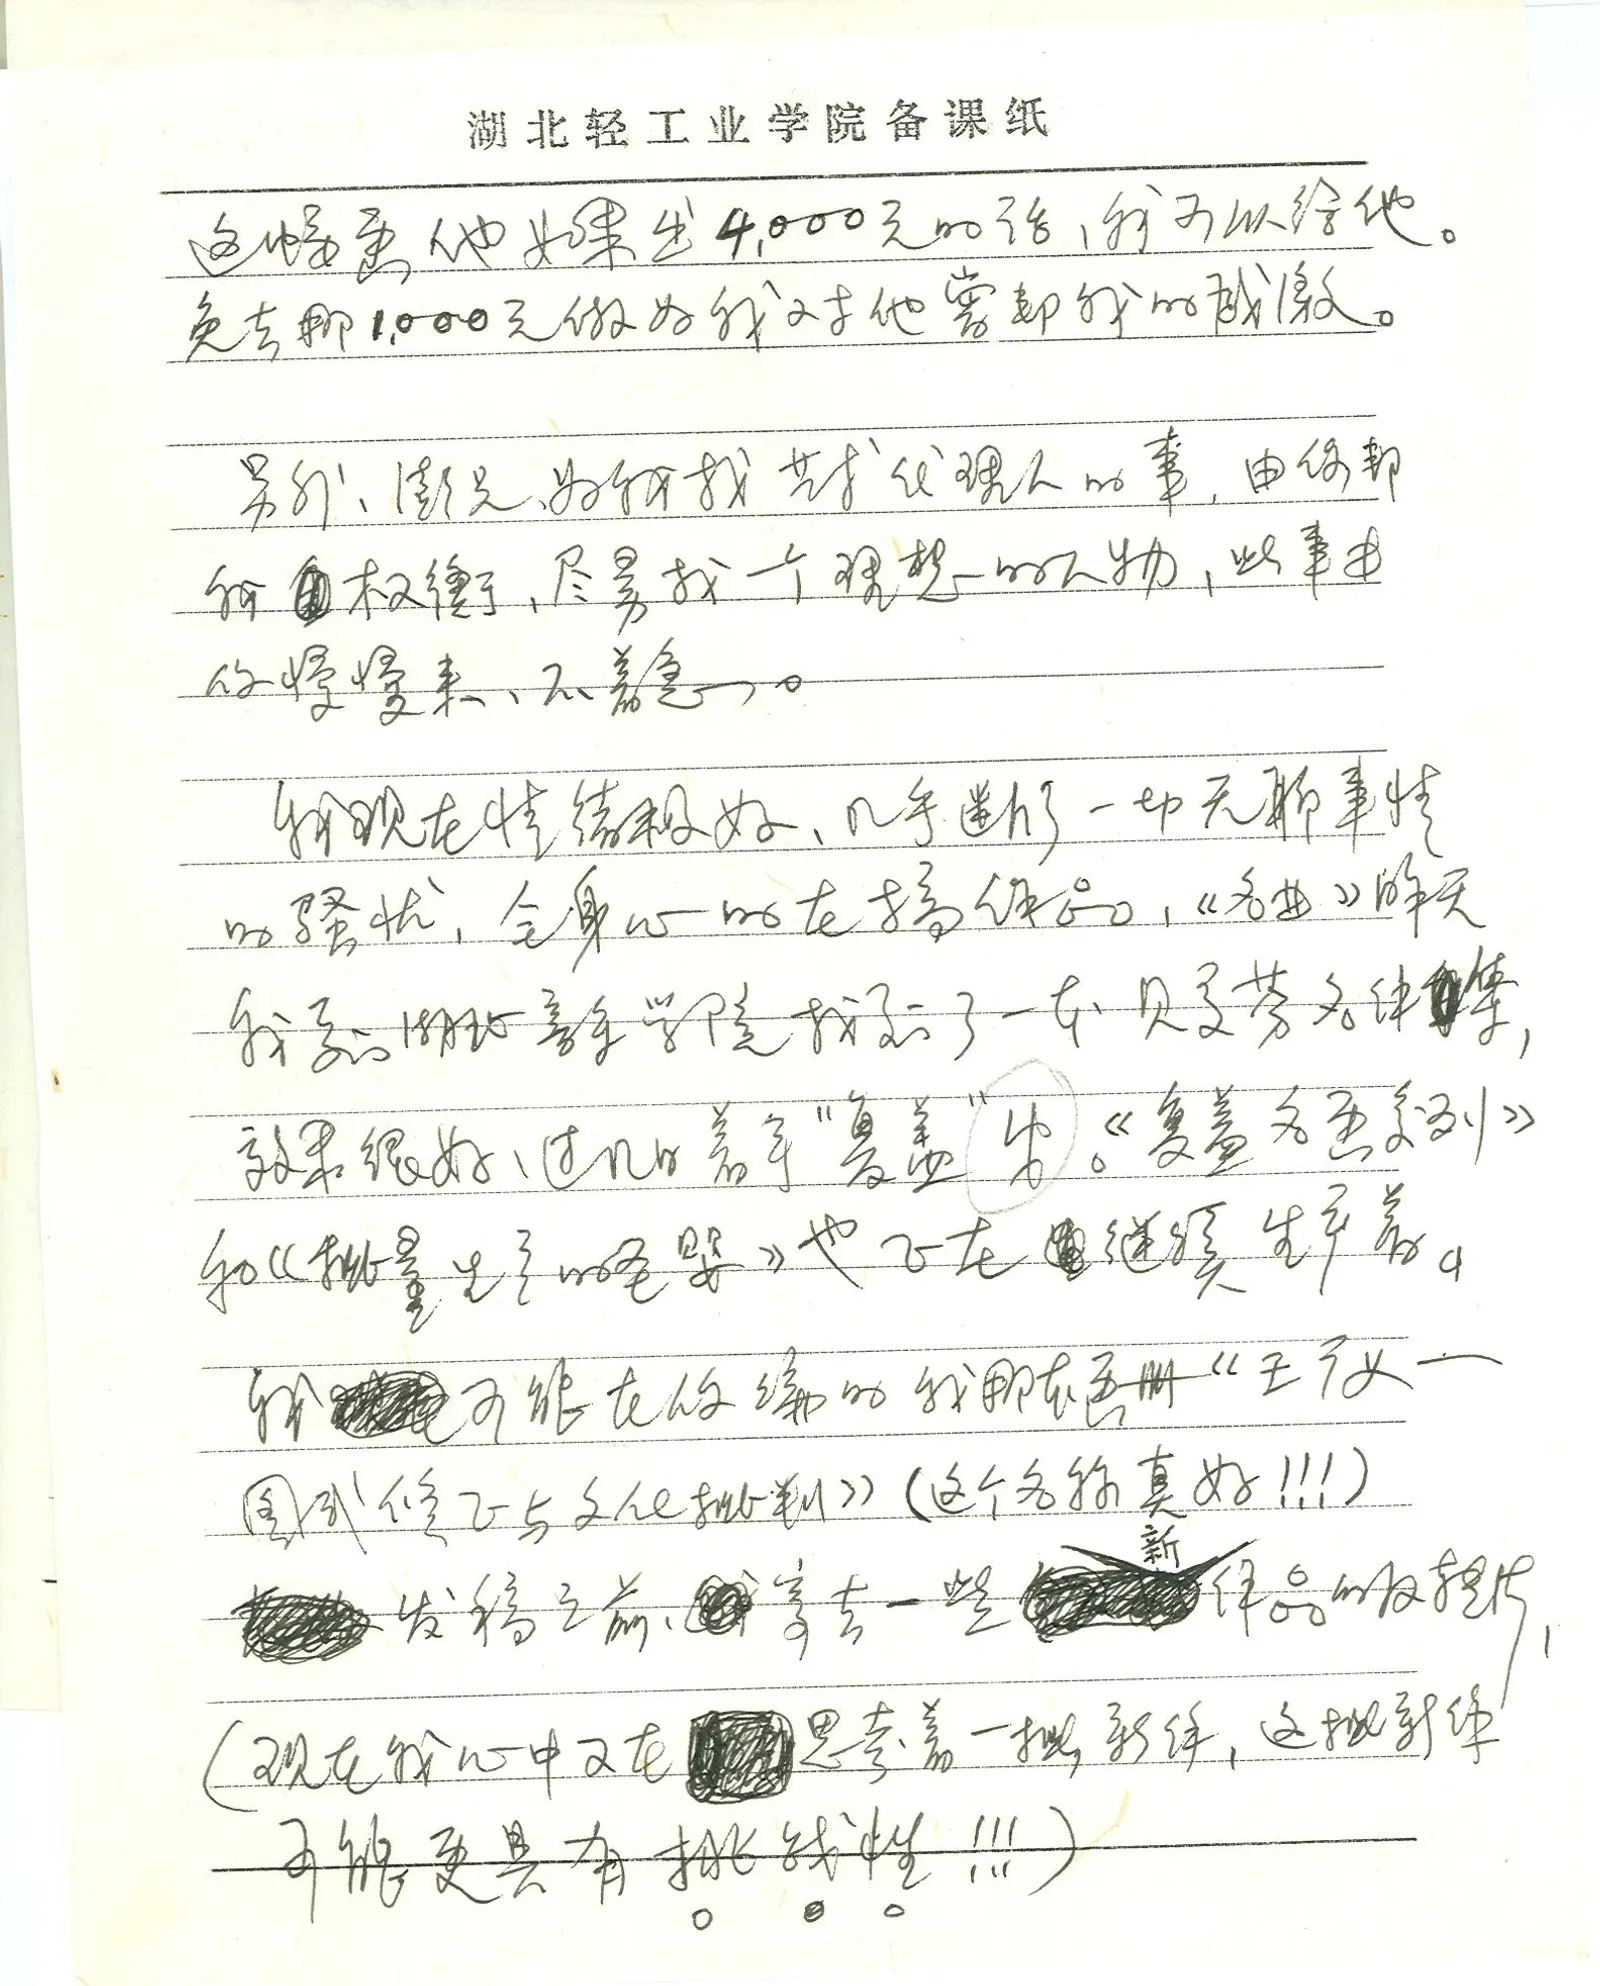 湖北轻工业学院备课纸
这幅画他如果出4,000元的话，我可以给他。
免去那1,000元做为我对他曾帮我的感激。
另外、澎兄、为我找艺术代理人的事，由你帮
我权衡，尽量找一个理想的人物，此事由
你慢慢来、不着急。
我现在情绪极好、几乎断了一切无聊事情
的骚扰，全身心的在搞作品，《名曲》昨天
我到湖北音乐学院找到了一本贝多芬名作集，
效果很好、近几日着手“复盖”。《复盖名画系列》
和《批量生产的圣婴》也正在继续生产着。
我可能在你编的我那本画册《王广义一
图式修正与文化批判》（这个名称真好!!!）
发稿之前、寄去一些新作品的反转片，
（现在我心中又在思考着一批新作，这批新作
可能更具有挑战性!!!）